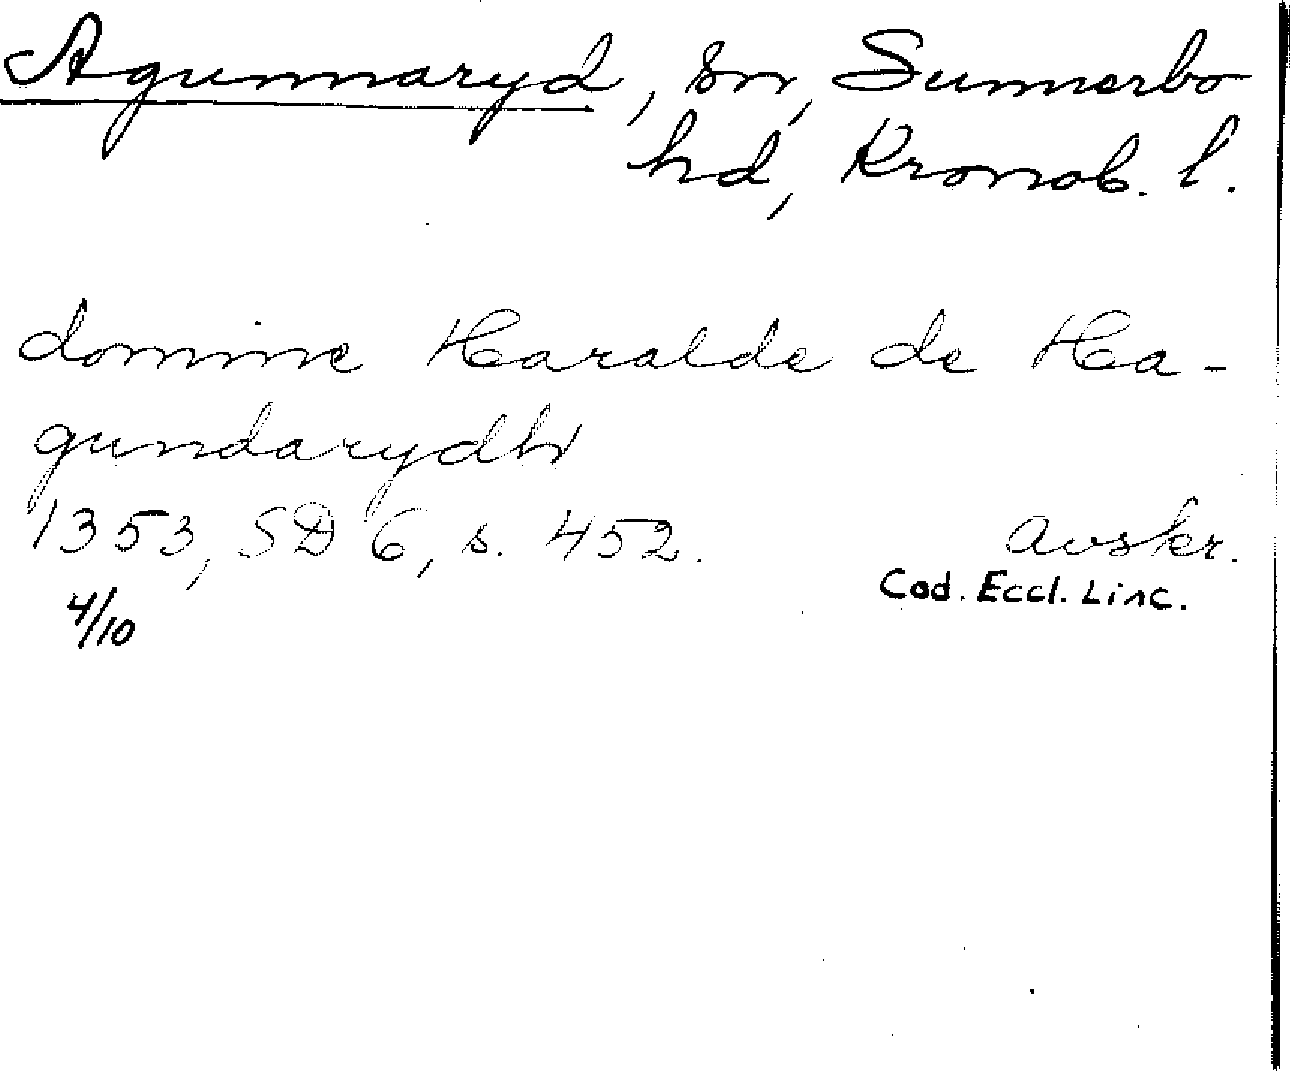 Agunnaryd, sn, Sunnerbo
hd, Kronob. l.
domine Haralde de Ha-
gundarydh
1353, SD 6, s. 452. avskr.
4/10 Cod. Eccl. Linc.